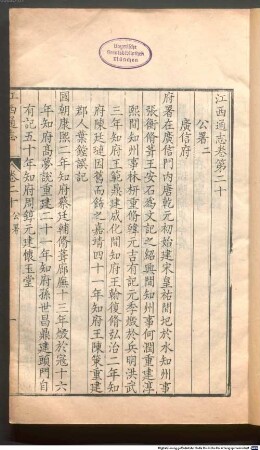 江西通志卷第二十
公署二
廣信府
府署在廣信門内唐乾元初始建宋皇祐間圮於水知州事
張衡脩葺王安石爲文記之紹興間知州事何潤重建淳
熙間知州事林枅重脩韓元吉有記元季燬於兵明洪武
三年知府王範鼎建成化間知府王翰復脩弘治二年知
府陳廷璉因舊而飾之嘉靖四十一年知府王陳策重建
郡人葉鏜譔記
國朝康熙二年知府蔡廷輔脩葺廊廡十三年燬於寇十六
年知府高夢説重建二十一年知府孫世昌鼎建頭門自
有記五十年知府周錞元建懷玉堂
江西通志
卷二十 公署
一